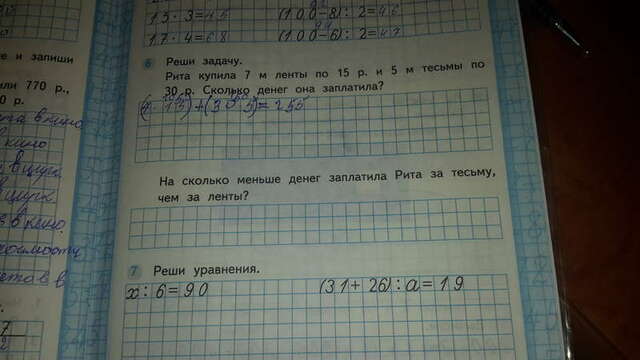 15 · 3=45 (100-8) : 2=46
17 · 4=68 (100-6) : 2=47
е и запиши
или 770 р.,
0 р.
6 Реши задачу.
Рита купила 7 м ленты по 15 р. и 5 м тесьмы по
30 р. Сколько денег она заплатила?
(7 · 15)+(30 · 5)=255
На сколько меньше денег заплатила Рита за тесьму,
чем за ленты?
7 Реши уравнения.
x : 6=90 (31+26) : a=19